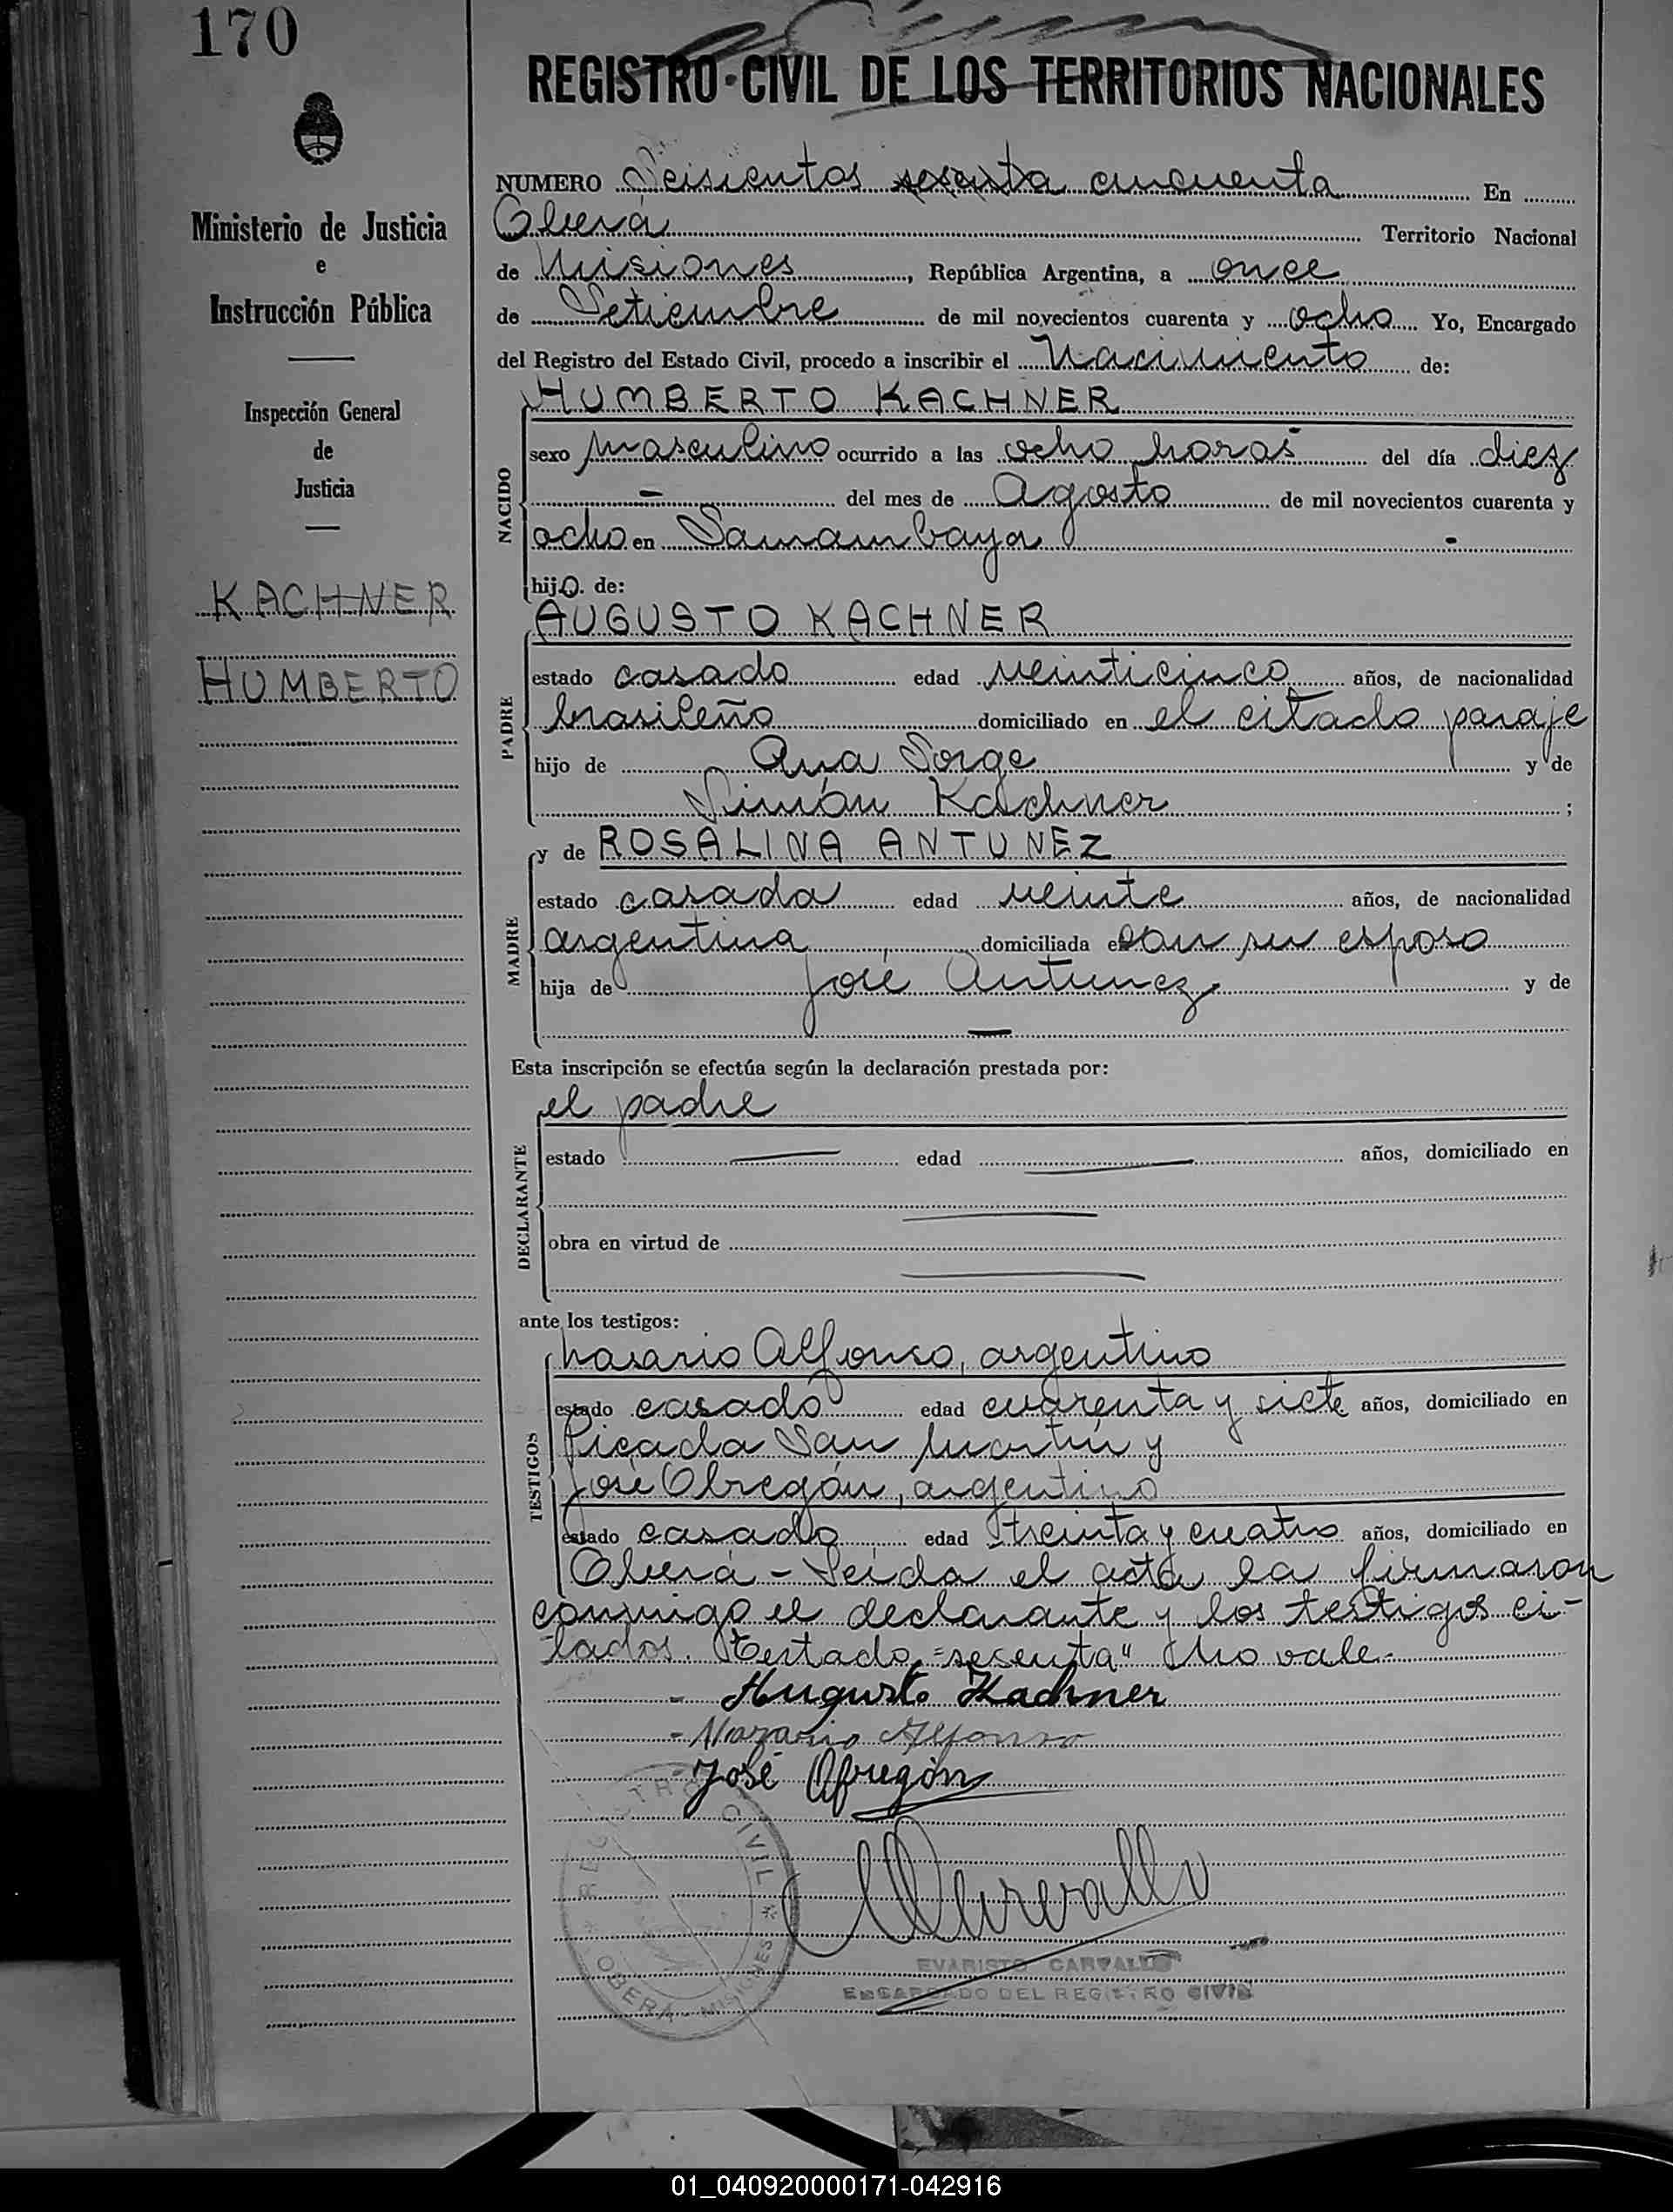 170
REGISTRO CIVIL DE LOS TERRITORIOS NACIONALES
Ministerio de Justicia
e
Instrucción Pública
Inspección General
de
Justicia
KACHNER
HUMBERTO
NUMERO Seisientos sesenta cincuenta En
Oberá Territorio Nacional
de Misiones, República Argentina, a once
de Setiembre de mil novecientos cuarenta y ocho Yo, Encargado
del Registro del Estado Civil, procedo a inscribir el Nacimiento de:
HUMBERTO KACHNER
NACIDO
sexo masculino ocurrido a las ocho horas del día diez
- del mes de Agosto de mil novecientos cuarenta y
ocho en Samambaya
hijo. de:
AUGUSTO KACHNER
PADRE
estado casado edad veinticinco años, de nacionalidad
brasileño domiciliado en el citado paraje
hijo de Ana Sorge y de
Simón Kachner ;
y de ROSALINA ANTUNEZ
MADRE
estado casada edad veinte años, de nacionalidad
argentina domiciliada con su esposo
hija de José Antunez y de
—
Esta inscripción se efectúa según la declaración prestada por:
el padre
DECLARANTE
estado — edad — años, domiciliado en
—
obra en virtud de
—
ante los testigos:
Nasario Alfonso, argentino
TESTIGOS
estado casado edad cuarenta y siete años, domiciliado en
Picada San Martín y
José Obregón, argentino
estado casado edad treinta y cuatro años, domiciliado en
Oberá - Leída el acta la firmaron
conmigo el declarante y los testigos ci-
tados. Testado "sesenta" No vale.
- Augusto Kachner
- Nazario Alfonso
- José Obregón
REGISTRO CIVIL * OBERÁ - MISIONES *
EVARISTO CARVALLO
ENCARGADO DEL REGISTRO CIVIL
01_040920000171-042916